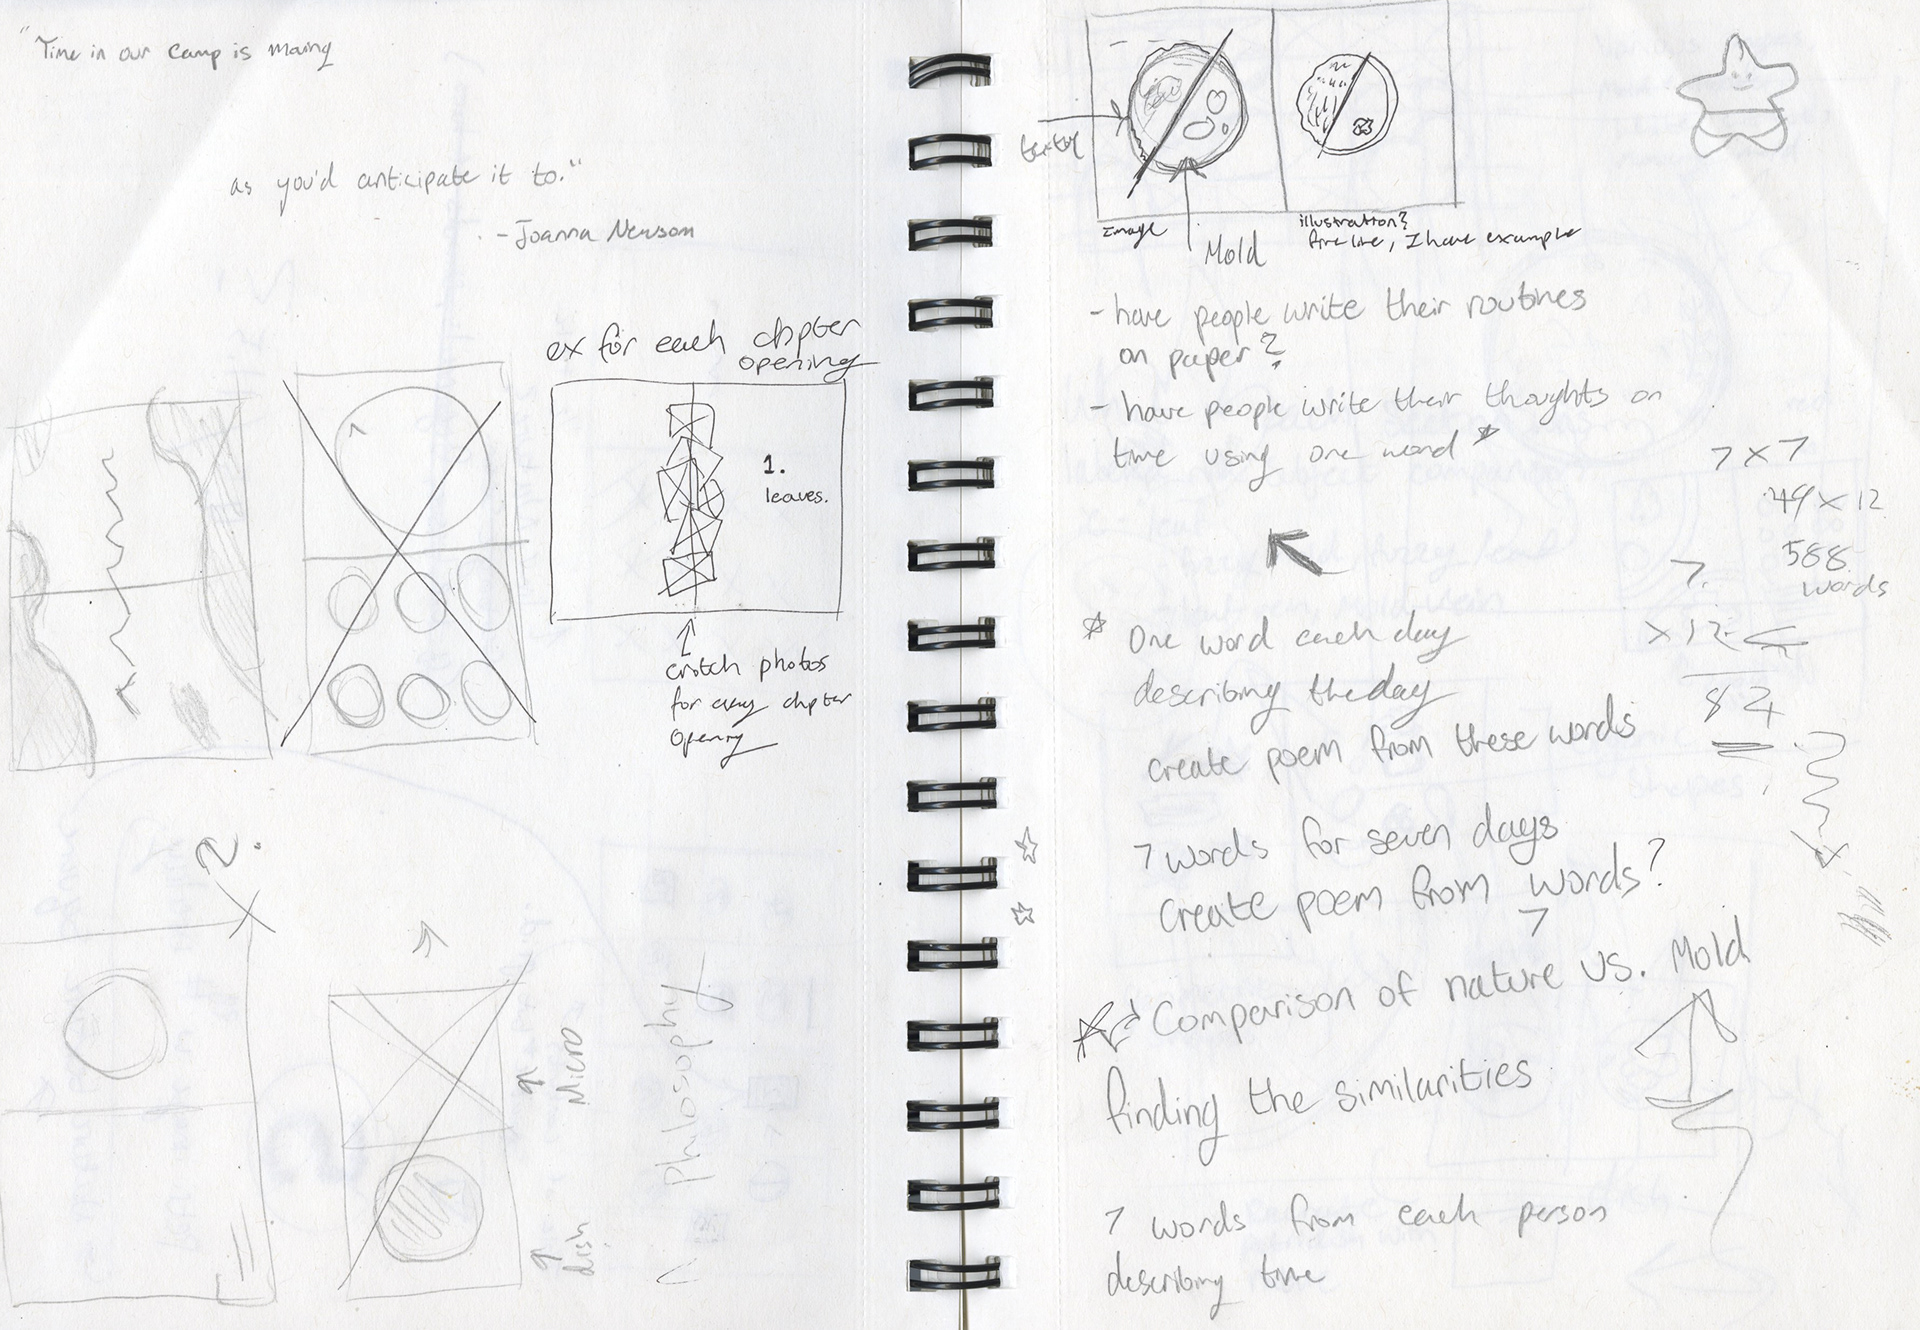 "Time in our camp is moving
as you'd anticipate it to."
- Joanna Newsom
ex for each chpter
opening
1.
leaves.
crotch photos
for every chpter
opening
2.
Micro
dish
philosophy
Image
Mold
illustration?
fine line, I have example
- have people write their routines
on paper?
- have people write their thoughts on
time using one word *
7 x 7
49 x 12
588
words
7.
x 12
84
* One word each day
describing the day
create poem from these words
7 words for seven days
create poem from words?
7
Comparison of nature vs. Mold
finding the similarities
7 words from each person
describing time